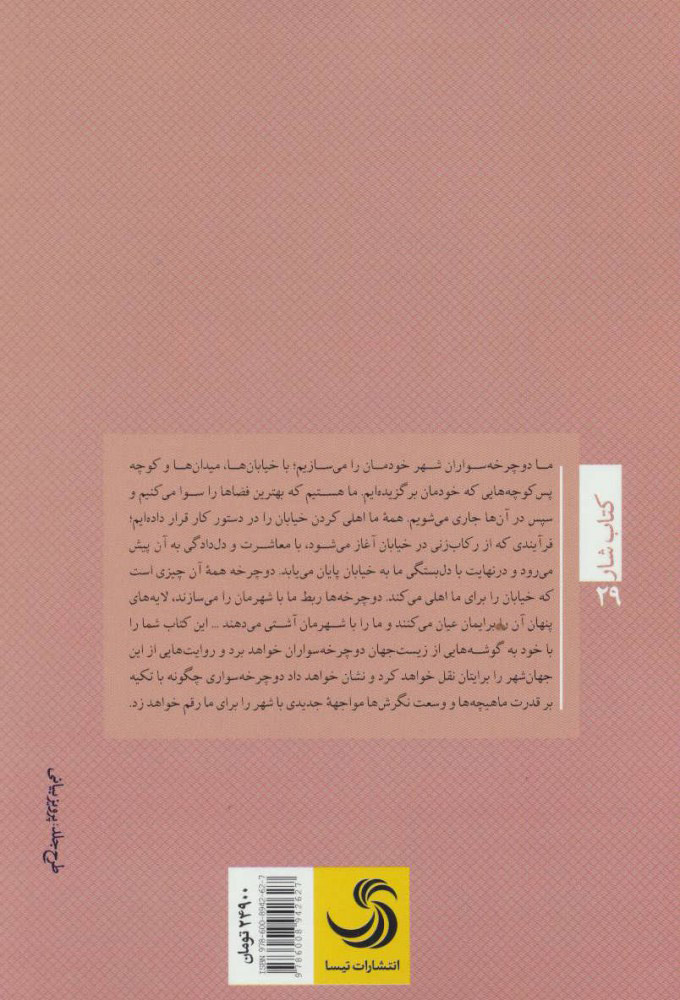 ما دوچرخه‌سواران شهر خودمان را می‌سازیم؛ با خیابان‌ها، میدان‌ها و کوچه
پس‌کوچه‌هایی که خودمان برگزیده‌ایم. ما هستیم که بهترین فضاها را سوا می‌کنیم و
سپس در آن‌ها جاری می‌شویم. همهٔ ما اهلی کردن خیابان را در دستور کار قرار داده‌ایم؛
فرآیندی که از رکاب‌زنی در خیابان آغاز می‌شود، با معاشرت و دل‌دادگی به آن پیش
می‌رود و درنهایت با دل‌بستگی ما به خیابان پایان می‌یابد. دوچرخه همهٔ آن چیزی است
که خیابان را برای ما اهلی می‌کند. دوچرخه‌ها ربط ما با شهرمان را می‌سازند، لایه‌های
پنهان آن را برایمان عیان می‌کنند و ما را با شهرمان آشتی می‌دهند ... این کتاب شما را
با خود به گوشه‌هایی از زیست‌جهان دوچرخه‌سواران خواهد برد و روایت‌هایی از این
جهان‌شهر را برایتان نقل خواهد کرد و نشان خواهد داد دوچرخه‌سواری چگونه با تکیه
بر قدرت ماهیچه‌ها و وسعت نگرش‌ها مواجههٔ جدیدی با شهر را برای ما رقم خواهد زد.
کتاب شار
۲۹
طرح جلد: پرویز بیانی
۲۴۹۰۰ تومان
ISBN 978-600-8942-62-7
9786008942627
انتشارات تیسا